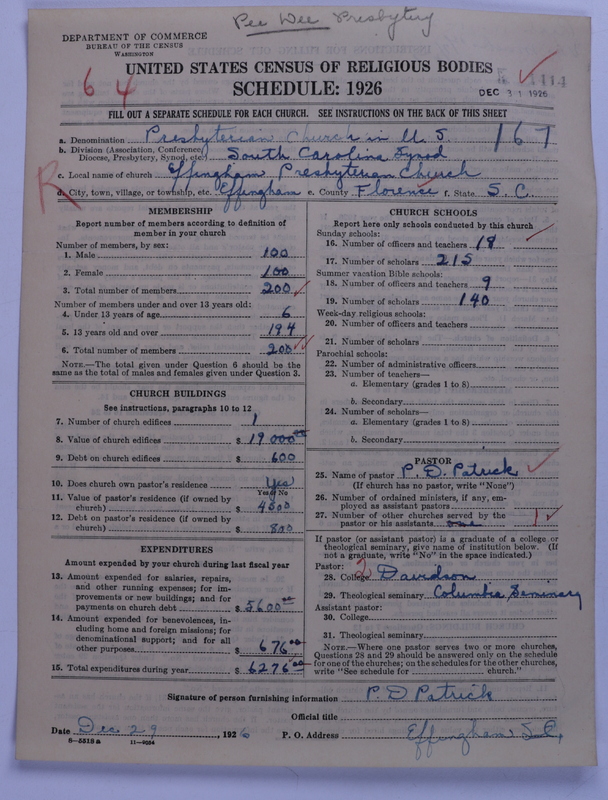 Pee Dee Presbytery
DEPARTMENT OF COMMERCE
BUREAU OF THE CENSUS
WASHINGTON
UNITED STATES CENSUS OF RELIGIOUS BODIES
SCHEDULE: 1926
DEC 31 1926
64
FILL OUT A SEPARATE SCHEDULE FOR EACH CHURCH. SEE INSTRUCTIONS ON THE BACK OF THIS SHEET
a. Denomination Presbyterian Church in U.S. 167
b. Division (Association, Conference, Diocese, Presbytery, Synod, etc.) South Carolina Synod
c. Local name of church Effingham Presbyterian Church
R
d. City, town, village, or township, etc. Effingham e. County Florence f. State S.C.
MEMBERSHIP
Report number of members according to definition of
member in your church
Number of members, by sex:
1. Male 100
2. Female 100
3. Total number of members 200
Number of members under and over 13 years old:
4. Under 13 years of age 6
5. 13 years old and over 194
6. Total number of members 200
NOTE.—The total given under Question 6 should be
same as the total of males and females given under Question 3.
CHURCH BUILDINGS
See instructions, paragraphs 10 to 12
7. Number of church edifices 1
8. Value of church edifices $ 19000.00
9. Debt on church edifices $ 600
10. Does church own pastor's residence Yes
Yes or No
11. Value of pastor's residence (if owned by
church) $ 4500
12. Debt on pastor's residence (if owned by
church) $ 800
EXPENDITURES
Amount expended by your church during last fiscal year
13. Amount expended for salaries, repairs,
and other running expenses; for im-
provements or new buildings; and for
payments on church debt $ 5600.00
14. Amount expended for benevolences, in-
cluding home and foreign missions; for
denominational support; and for all
other purposes $ 676.00
15. Total expenditures during year $ 6276.00
CHURCH SCHOOLS
Report here only schools conducted by this church
Sunday schools:
16. Number of officers and teachers 19
17. Number of scholars 215
Summer vacation Bible schools:
18. Number of officers and teachers 9
19. Number of scholars 140
Week-day religious schools:
20. Number of officers and teachers
21. Number of scholars
Parochial schools:
22. Number of administrative officers
23. Number of teachers—
a. Elementary (grades 1 to 8)
b. Secondary
24. Number of scholars—
a. Elementary (grades 1 to 8)
b. Secondary
PASTOR
25. Name of pastor P. D. Patrick
(If church has no pastor, write "None")
26. Number of ordained ministers, if any, em-
ployed as assistant pastors
27. Number of other churches served by the
pastor or his assistants one 1
If pastor (or assistant pastor) is a graduate of a college or
theological seminary, give name of institution below. (If
not a graduate, write "No" in the space indicated.)
Pastor: 2
28. College Davidson
29. Theological seminary Columbia Seminary
Assistant pastor:
30. College
31. Theological seminary
NOTE.—Where one pastor serves two or more churches,
Questions 28 and 29 should be answered only on the schedule
for one of the churches; on the schedules for the other churches,
write "See schedule for church."
Signature of person furnishing information P D Patrick
Official title
Date Dec 29, 1926 P. O. Address Effingham S.C.
8—5518a 11—9054